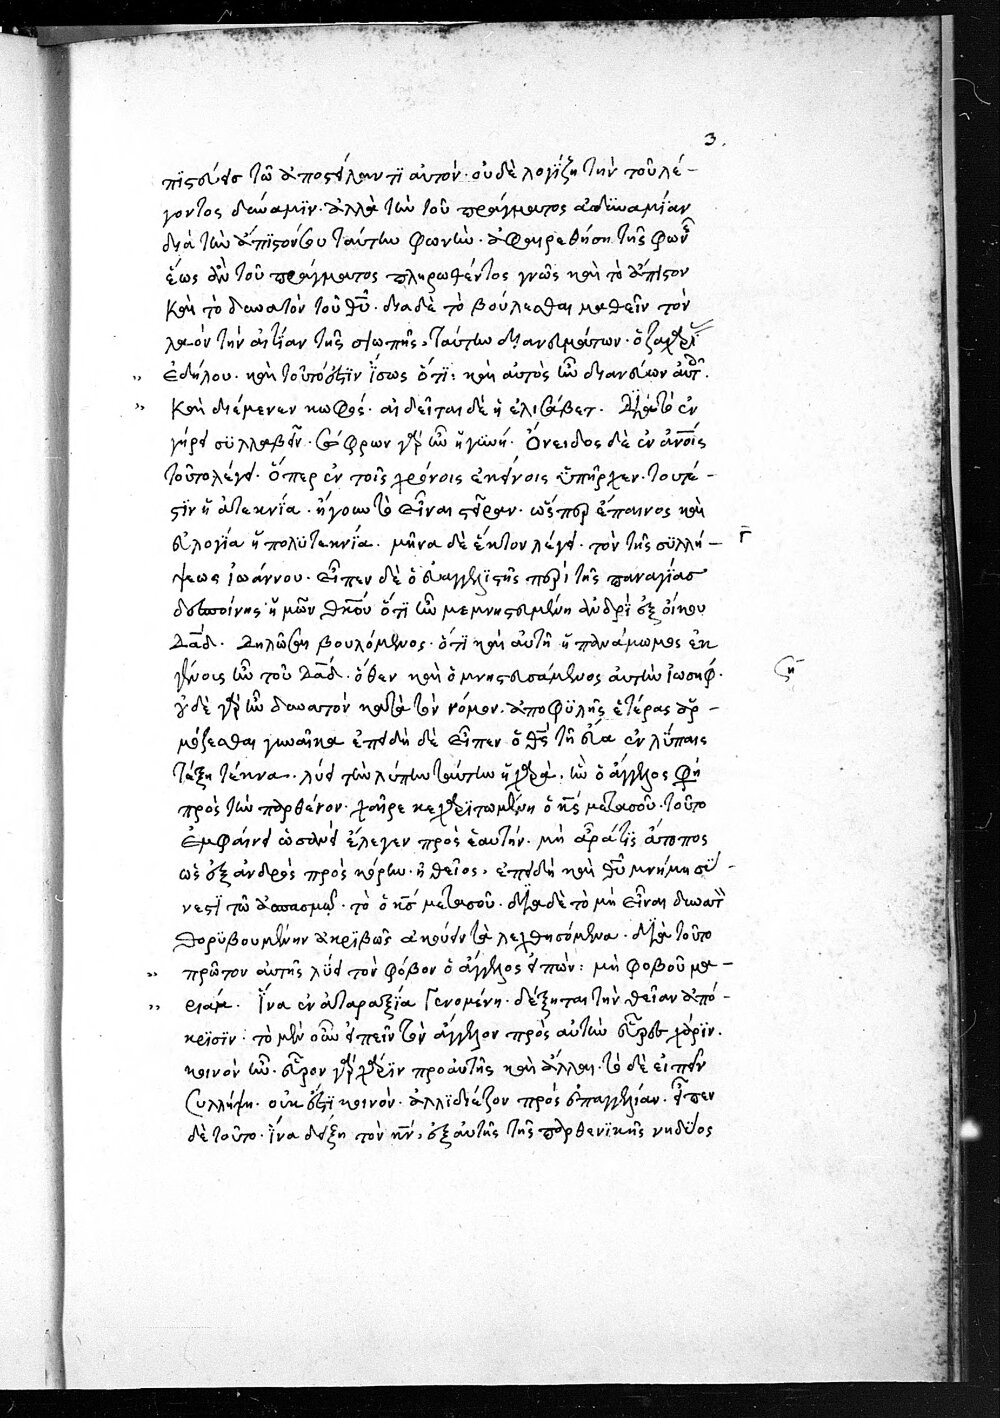 3.
πϊστεύεις τῶ ἀποστείλαντϊ αὐτόν· οὐδὲ λογίζη τὴν τοῦ λέ-
γοντος δύναμϊν· ἀλλὰ τὴν τοῦ πράγματος ἀδϋναμίαν
διὰ τὴν ἀπϊστοῦσαν ταύτην φωνὴν· ἀφαιρεθήση τῆς φων
ἕως ἂν τοῦ πράγματος πληρωθέντος γνῶς καὶ τὸ ἄπϊστον
καὶ τὸ δυνατὸν τοῦ θυ· διὰ δὲ τὸ βούλεσθαι μαθεῖν τὸν
λαὸν τὴν αἰτίαν τῆς σιωπῆς, ταύτην διανευμάτων· ὁ ζαχαρί
ἐδήλου· καὶ τοῦτό ἐστϊν ἴσως ὅτι: καὶ αὐτὸς ἦν διανεύων αὐτ.
καὶ διέμενεν κωφός· αἰδεῖται δὲ ἡ ἐλισάβετ· διὰ τὸ ἐν
γήρει σϋλλαβεῖν· σώφρων γὰρ ἦν ἡ γϋνή· ὄνειδος δὲ ἐν ἀνοις
τοῦτο λέγει· ὅπερ ἐν τοῖς χρόνοις ἐκείνοις ὕπῆρχεν· τουτέ-
στϊν ἡ ἀτεκνία· ἤγουν τὸ εἶναι στεῖραν· ὥσπερ ἔπαινος καὶ
εὐλογία ἡ πολϋτεκνία· μῆνα δὲ ἕκτον λέγει· τὸν τῆς σϋλλή-
Γ
ψεως ἰωάννου· εἶπεν δὲ ὁ εὐαγγελϊστὴς περὶ τῆς παναγίας
δεσποίνης ἡμῶν θκου ὅτι ἦν μεμνηστευμένη ἀνδρϊ ἐξ οἴκου
δαδ· δηλῶσαι βουλόμενος· ὅτϊ καὶ αὐτὴ ἡ πανάμωμος ἐκ
γένους ἦν τοῦ δαδ· ὅθεν καὶ ὁ μνηστευσάμενος αὐτὴν ἰωσήφ·
οὐδὲ γὰρ ἦν δυνατὸν κατὰ τὸν νόμον· ἀπὸ φϋλῆς ἑτέρας ἁρ-
μόζεσθαι γυναῖκα ἐπειδὴ δὲ εἶπεν ὁ θς τῆ εὔα ἐν λύπαις
τέξη τέκνα· λύει τὴν λύπην ταύτην ἡ χαρὰ, ἣν ὁ ἄγγελος φη
πρὸς τὴν παρθένον· χαῖρε κεχαρϊτωμένη ὁ κς μετὰ σοῦ· τοῦτο
ἐμφαίνει ὡσανεὶ ἔλεγεν πρὸς ἑαυτήν· μὴ ἄρά τϊς ἄτοπος
ὡς ἐξ ἀνδρὸς πρὸς κόρην· ἢ θεῖος, ἐπειδὴ καὶ θυ μνήμη σϋ-
νεστϊ τῶ ἀσπασμῶ· τὸ ὁ κς μετὰ σοῦ· διὰ δὲ τὸ μὴ εἶναι δυνατ
θορϋβουμένην ἀκρϊβῶς ἀκούειν τὰ λεχθησόμενα· διὰ τοῦτο
πρῶτον αὐτῆς λύει τὸν φόβον ὁ ἄγγελος εἰπών: μὴ φοβοῦ μα-
ριάμ· ἵνα ἐν ἀταραξία γενομένη· δέξηται τὴν θείαν ἀπό-
κρϊσϊν· τὸ μὲν οὖν εἰπεῖν τὸν ἄγγελον πρὸς αὐτὴν εὗρες χάρϊν·
κοινὸν ἦν· εὗρον γὰρ χάρϊν πρὸ αὐτῆς καὶ ἄλλαι· τὸ δὲ εἰπεῖν
συλλήψη· οὐκ ἔστϊ κοινὸν· ἀλλ' ϊδιάζον πρὸς ἐπαγγελίαν· εἶπεν
δὲ τοῦτο· ἵνα δείξη τὸν κν, ἐξ αὐτῆς τῆς παρθενϊκῆς νηδϋος